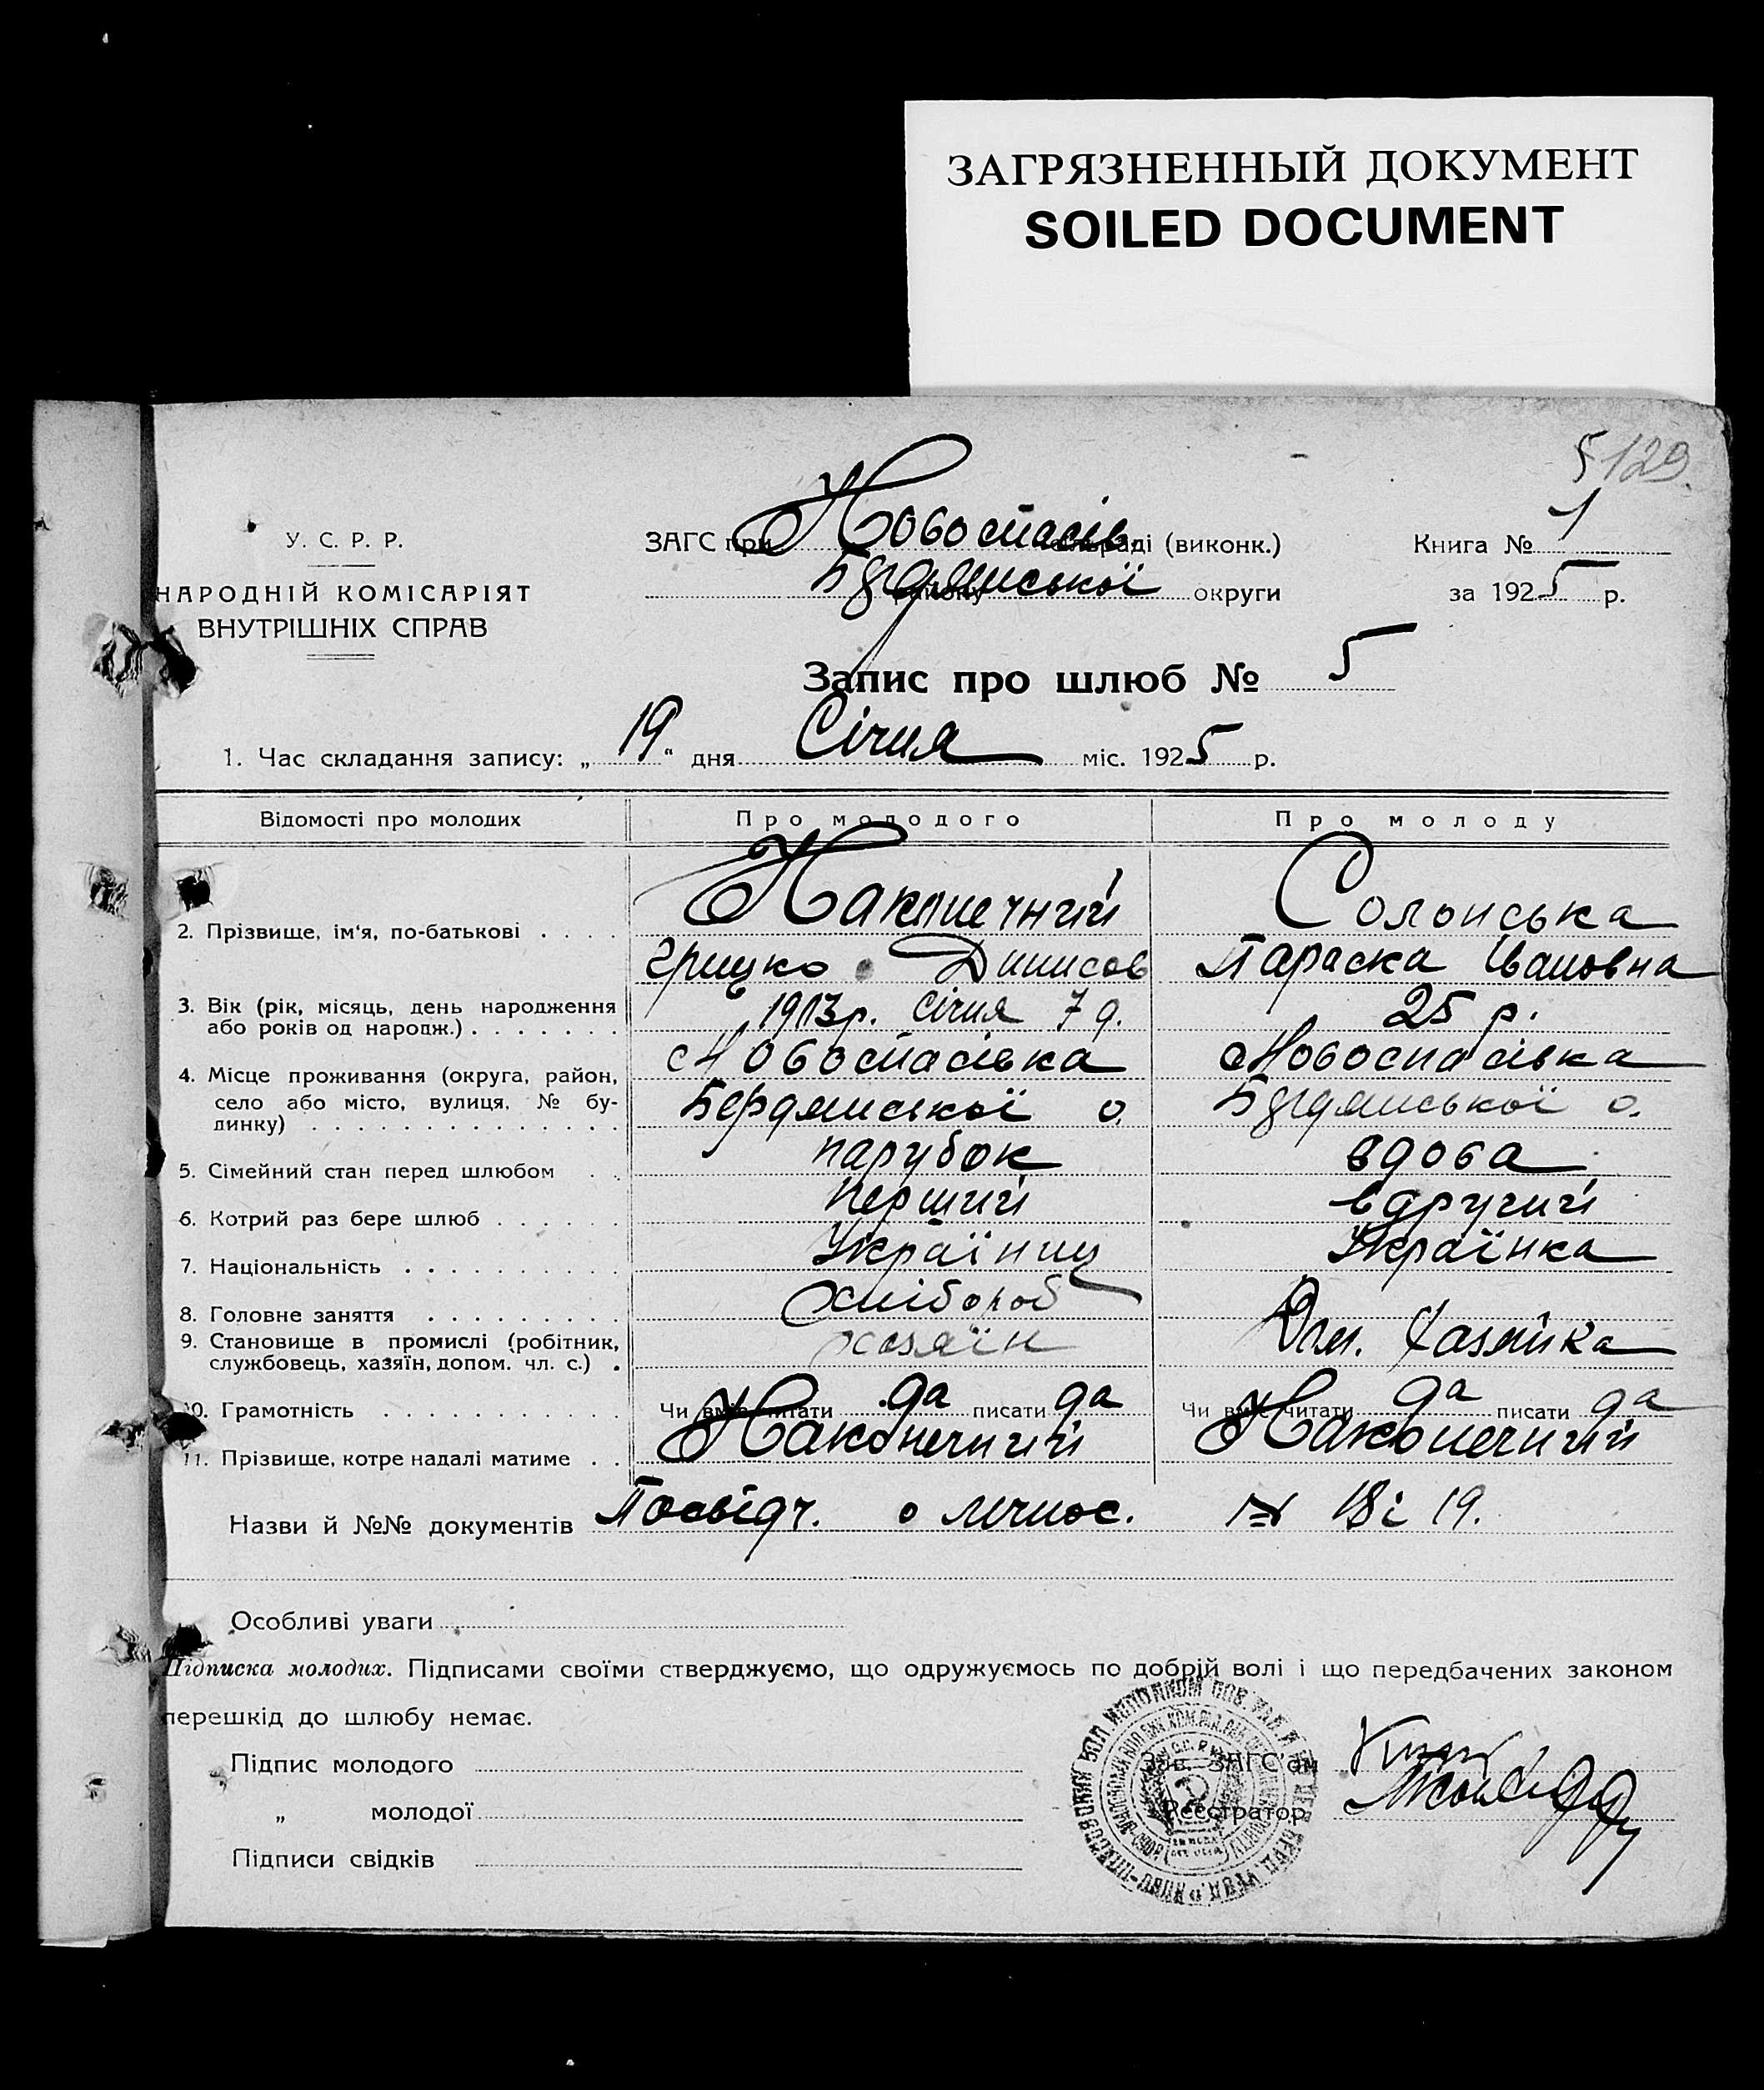 ЗАГРЯЗНЕННЫЙ ДОКУМЕНТ
SOILED DOCUMENT
5 129.
У. С. Р. Р.
НАРОДНІЙ КОМІСАРІЯТ
ВНУТРІШНІХ СПРАВ
ЗАГС при Новоспасів. сільраді (виконк.)
району Бердянської округи
Книга № 1
за 1925 р.
Запис про шлюб № 5
1. Час складання запису: „19“ дня Січня міс. 1925 р.
Відомості про молодих Про молодого Про молоду
2. Прізвище, ім‘я, по-батькові . . . . Наконечний Солонська
Грицко Динисов Параска Івановна
3. Вік (рік, місяць, день народження або років од народж.) . . . . . . . 1903р. Січня 7 д. 25 р.
4. Місце проживання (округа, район, село або місто, вулиця, № будинку) . . . . . . . . . . . . . . Новоспасівка Новоспасівка
Бердянської о. Бердянської о.
5. Сімейний стан перед шлюбом . . парубок вдова
6. Котрий раз бере шлюб . . . . . . перший вдругий
7. Національність . . . . . . . . . . Українец Українка
8. Головне заняття . . . . . . . . . Хлібороб
9. Становище в промислі (робітник, службовець, хазяїн, допом. чл. с.) . хазяїн Дом. Хазяйка
10. Грамотність . . . . . . . . . . . Чи вміє читати да писати да Чи вміє читати да писати да
11. Прізвище, котре надалі матиме . . Наконечний Наконечний
Назви й №№ документів Посвідч. о лічнос. № 18 і 19.
Особливі уваги
Підписка молодих. Підписами своїми стверджуємо, що одружуємось по добрій волі і що передбачених законом
перешкід до шлюбу немає.
Підпис молодого
„ молодої
Підписи свідків
Зав. ЗАГС‘ом
Реєстратор